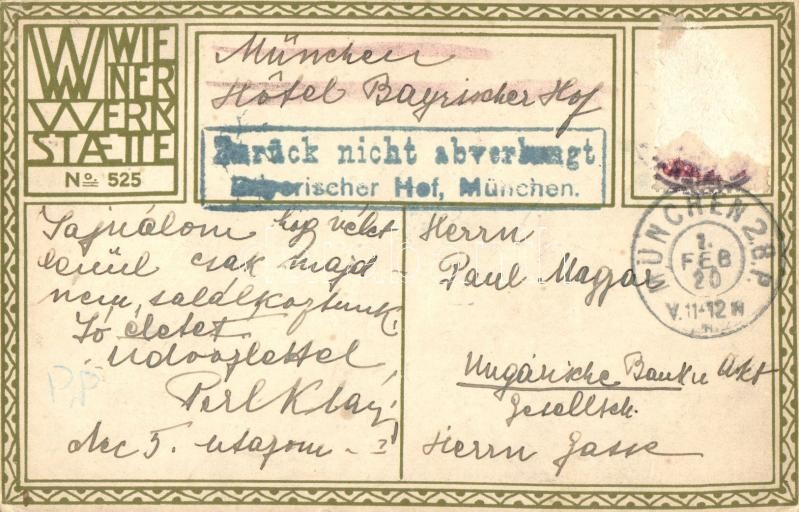 WIE
NER
WERK
STÆTTE
No 525
München
Hôtel Bayrischer Hof
Zurück nicht abverlangt
Bayerischer Hof, München.
MÜNCHEN 2 B.P.
1.
FEB
20
V.11-12 N
Sajnálom hogy vélet
lenül csak majd
nem, találkoztunk.
Jó életet
Üdvözlettel
Perl
Dec 5. utazom -
Herrn
Paul Magyar
Ungarische Bank u Akt
Gesellsch.
Herrn Gasse
pp